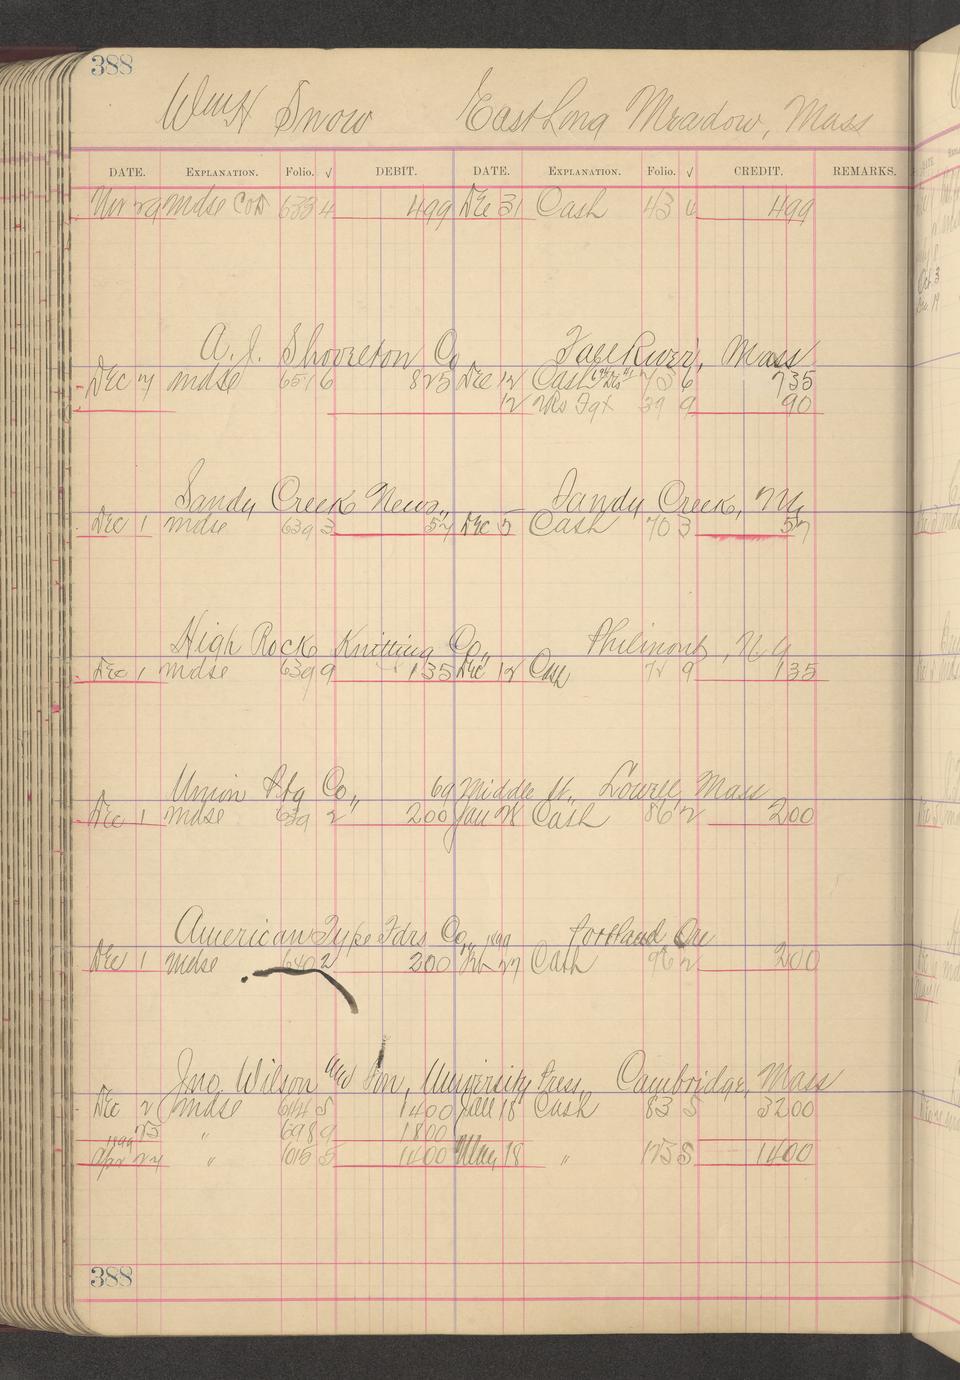 388
Wm H Snow East Long Meadow, Mass
DATE. EXPLANATION. Folio. √ DEBIT. DATE. EXPLANATION. Folio. √ CREDIT. REMARKS.
29 mdse COD 633 4 499 Dec 31 Cash 43 4 499
A. J. Shovelton Co Fall River, Mass
Dec 7 mdse 651 6 825 Dec 12 Cash 75 6 735
12 Frt 39 9 90
Sandy Creek News,, Sandy Creek, NY
Dec 1 mdse 639 3 57 Dec 5 Cash 70 3 57
High Rock Knitting Co,, Philmont, N Y
Dec 1 mdse 639 9 135 Dec 12 Cash 72 9 135
Union Pbg Co,, 69 Middle St,, Lowell, Mass
Dec 1 mdse 639 2 200 Jan 28 Cash 86 2 200
American Type Fdrs Co,, 1899 Portland Ore
Dec 1 mdse 640 2 200 Feb 27 Cash 96 2 200
Jno. Wilson and Son, University Press, Cambridge, Mass
Dec 2 mdse 644 5 1400 Jan 18 Cash 83 5 3200
23 " 698 9 1800
1899
Apr 27 " 1015 5 1400 May 18 " 125 5 1400
388